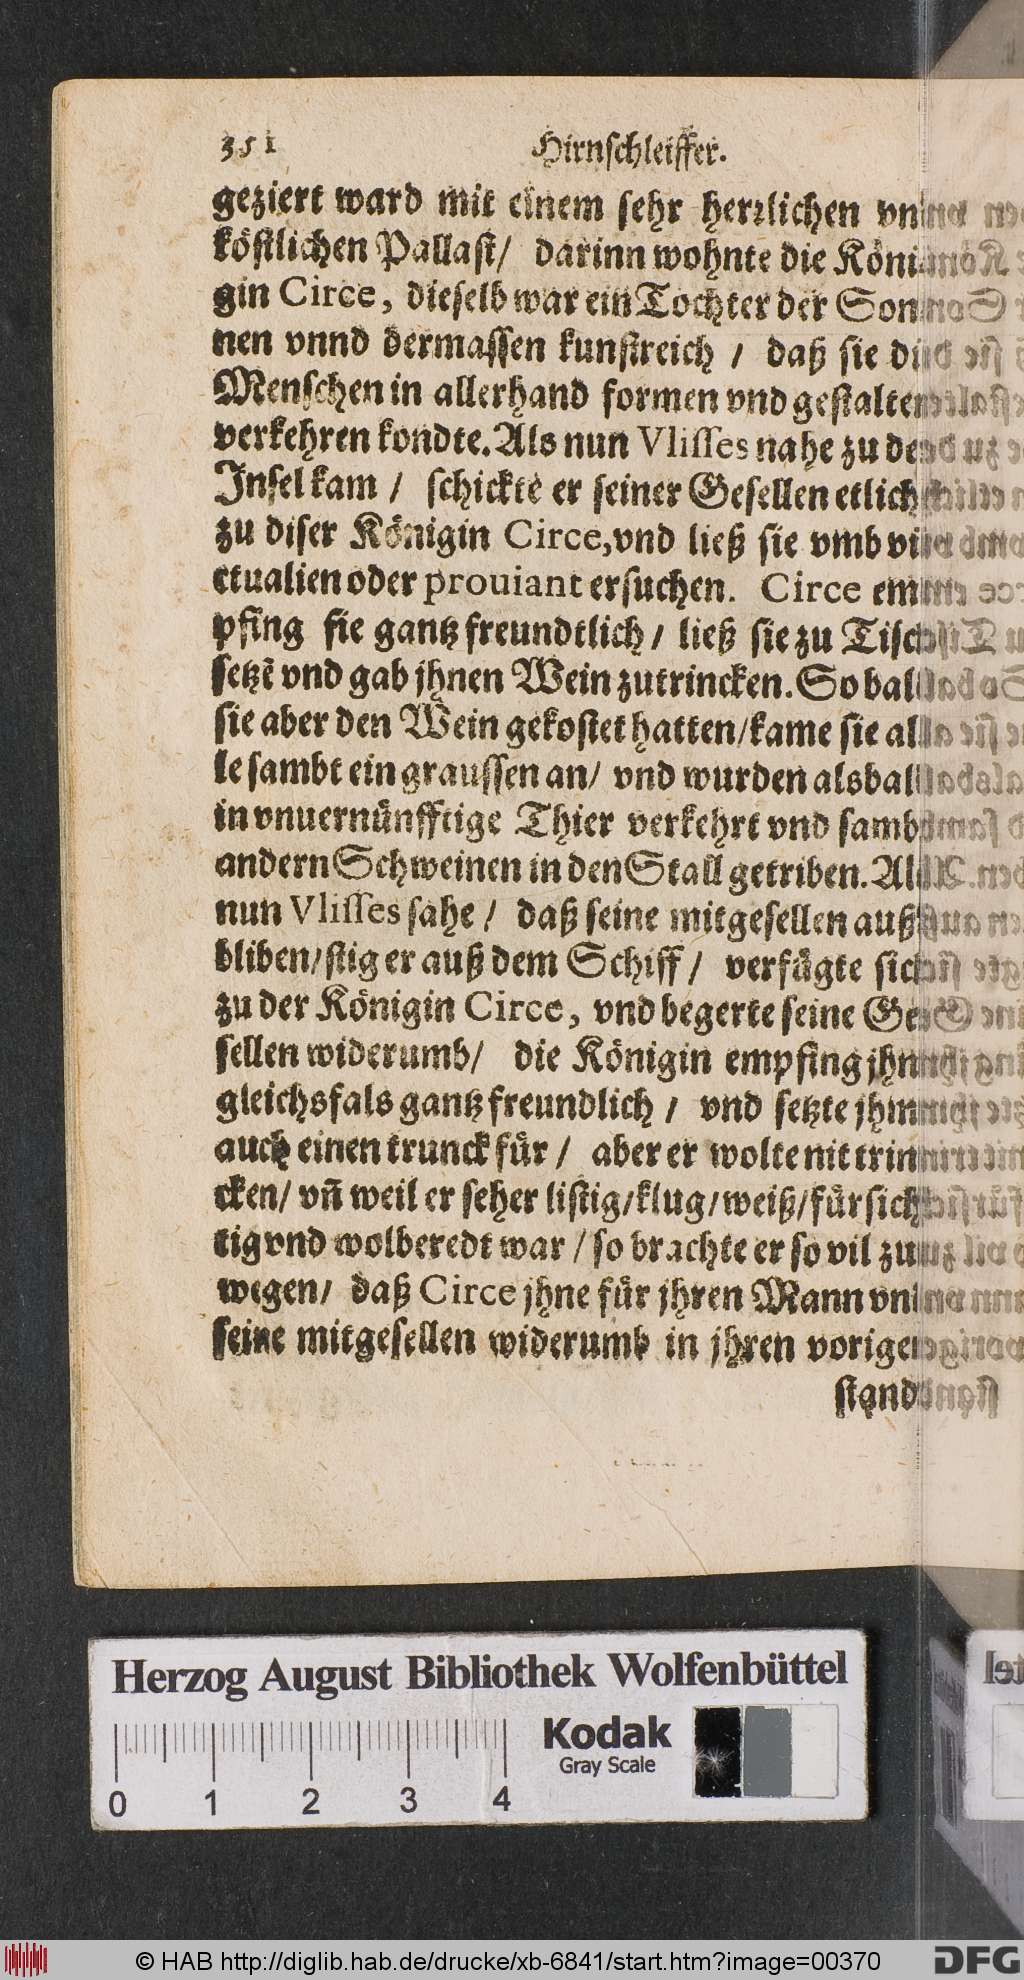 351 Hirnschleiffer.
geziert ward mit einem sehr herꝛlichen vn
köstlichen Pallast/ darinn wohnte die Köni
gin Circe, dieselb war ein Tochter der Son
nen vnnd dermassen kunstreich / daß sie di
Menschen in allerhand formen vnd gestalten
verkehren kondte. Als nun Vlisses nahe zu de
Insel kam / schickte er seiner Gesellen etlich
zu diser Königin Circe, vnd ließ sie vmb vi
ctualien oder prouiant ersuchen. Circe em
pfing sie gantz freundtlich / ließ sie zu Tisch
setzẽ vnd gab jhnen Wein zutrincken. So bal
sie aber den Wein gekostet hatten/kame sie al
le sambt ein graussen an/ vnd wurden alsbal
in vnuernünfftige Thier verkehrt vnd samb
andern Schweinen in den Stall getriben. Al
nun Vlisses sahe / daß seine mitgesellen auß
bliben/stig er auß dem Schiff / verfügte sich
zu der Königin Circe, vnd begerte seine Ge
sellen widerumb/ die Königin empfing jhn
gleichsfals gantz freundlich / vnd setzte jhm
auch einen trunck für / aber er wolte nit trin
cken/ vñ weil er seher listig/klug/weiß/fürsich
tig vnd wolberedt war / so brachte er so vil zu
wegen/ daß Circe jhne für jhren Mann vn
seine mitgesellen widerumb in jhren vorigen
stand
Herzog August Bibliothek Wolfenbüttel
Kodak
Gray Scale
0 1 2 3 4
© HAB http://diglib.hab.de/drucke/xb-6841/start.htm?image=00370 DFG